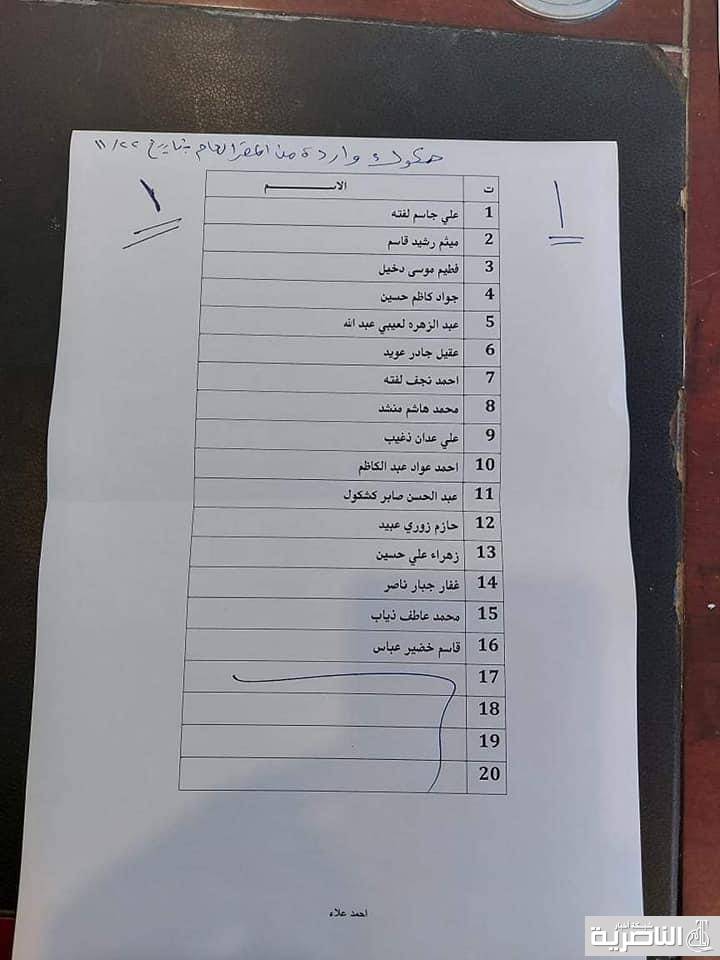 صكوك واردة من المقر العام بتاريخ ١١/٢٢
١
١
ت الاســـــم
1 علي جاسم لفته
2 ميثم رشيد قاسم
3 فطيم موسى دخيل
4 جواد كاظم حسين
5 عبد الزهره لعيبي عبد الله
6 عقيل جادر عويد
7 احمد نجف لفته
8 محمد هاشم منشد
9 علي عدان ذغيب
10 احمد عواد عبد الكاظم
11 عبد الحسن صابر كشكول
12 حازم زوري عبيد
13 زهراء علي حسين
14 غفار جبار ناصر
15 محمد عاطف ذياب
16 قاسم خضير عباس
17
18
19
20
احمد علاء
شبكة اخبار
الناصرية